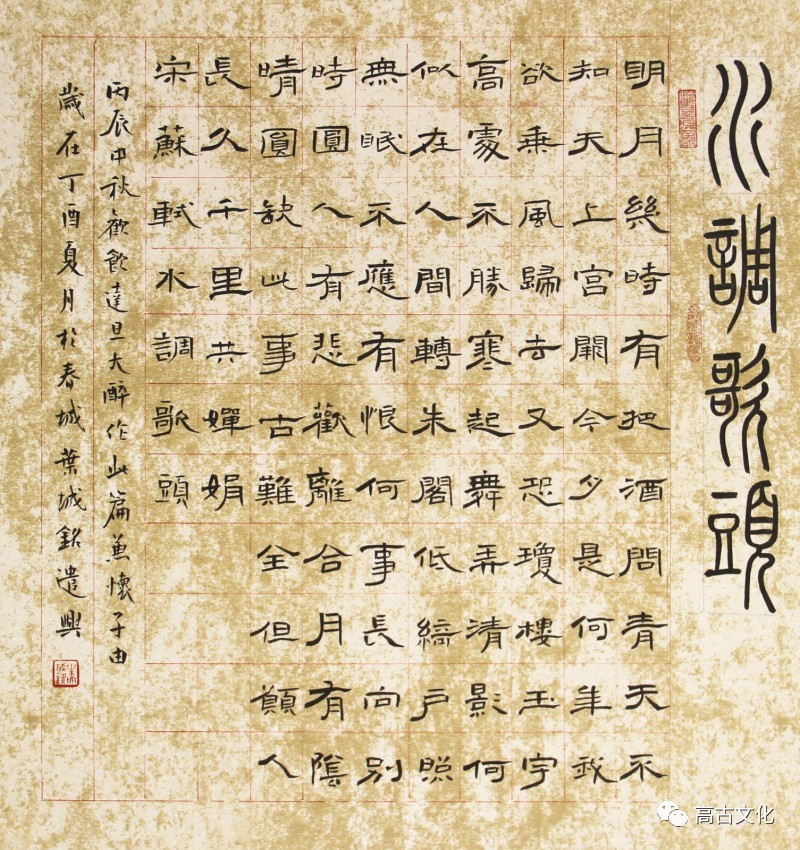 水調歌頭
明月幾時有把酒問青天不
知天上宮闕今夕是何年我
欲乘風歸去又恐瓊樓玉宇
高處不勝寒起舞弄清影何
似在人間轉朱閣低綺戶照
無眠不應有恨何事長向別
時圓人有悲歡離合月有陰
晴圓缺此事古難全但願人
長久千里共嬋娟
宋蘇軾水調歌頭
丙辰中秋歡飲達旦大醉作此篇兼懷子由
歲在丁酉夏月於春城葉城銘遣興
高古文化